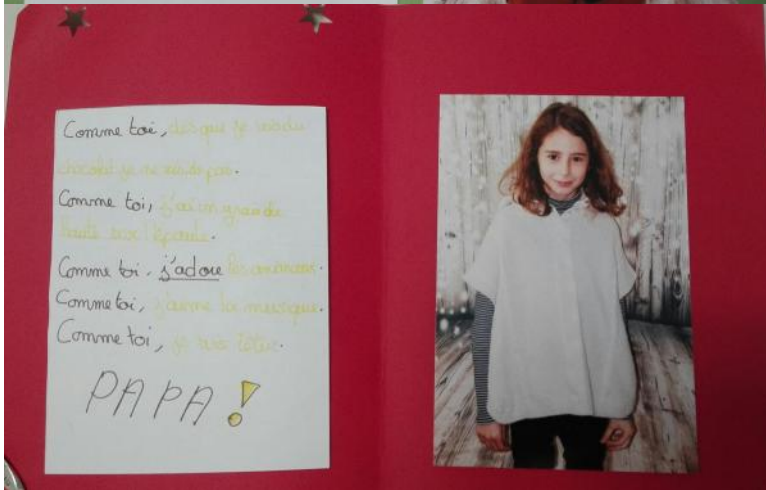 Comme toi, dès que je vois du
chocolat je ne résiste pas.
Comme toi, j'ai un grain de
beauté sur l'épaule.
Comme toi, j'adore les animaux.
Comme toi, j'aime la musique.
Comme toi, je suis têtue.
PAPA!